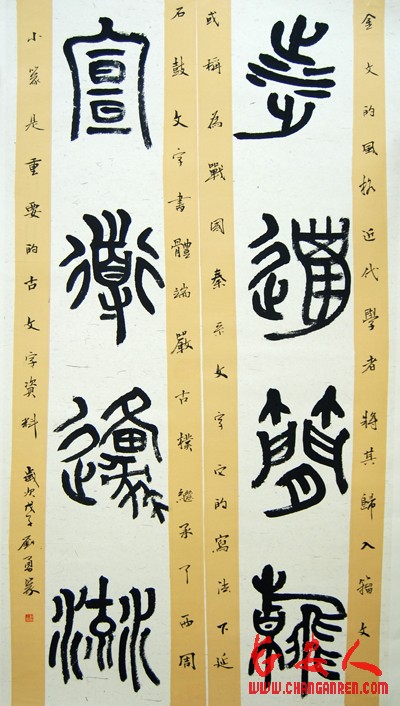 金文的風格近代學者將其歸入籀文
簡
或稱為戰國秦系文字它的寫法下延
石鼓文字書體端嚴古樸繼承了西周
宣導邍流
小篆是重要的古文字資料
歲次戊子劉勇篆
長安人
WWW.CHANGANREN.COM